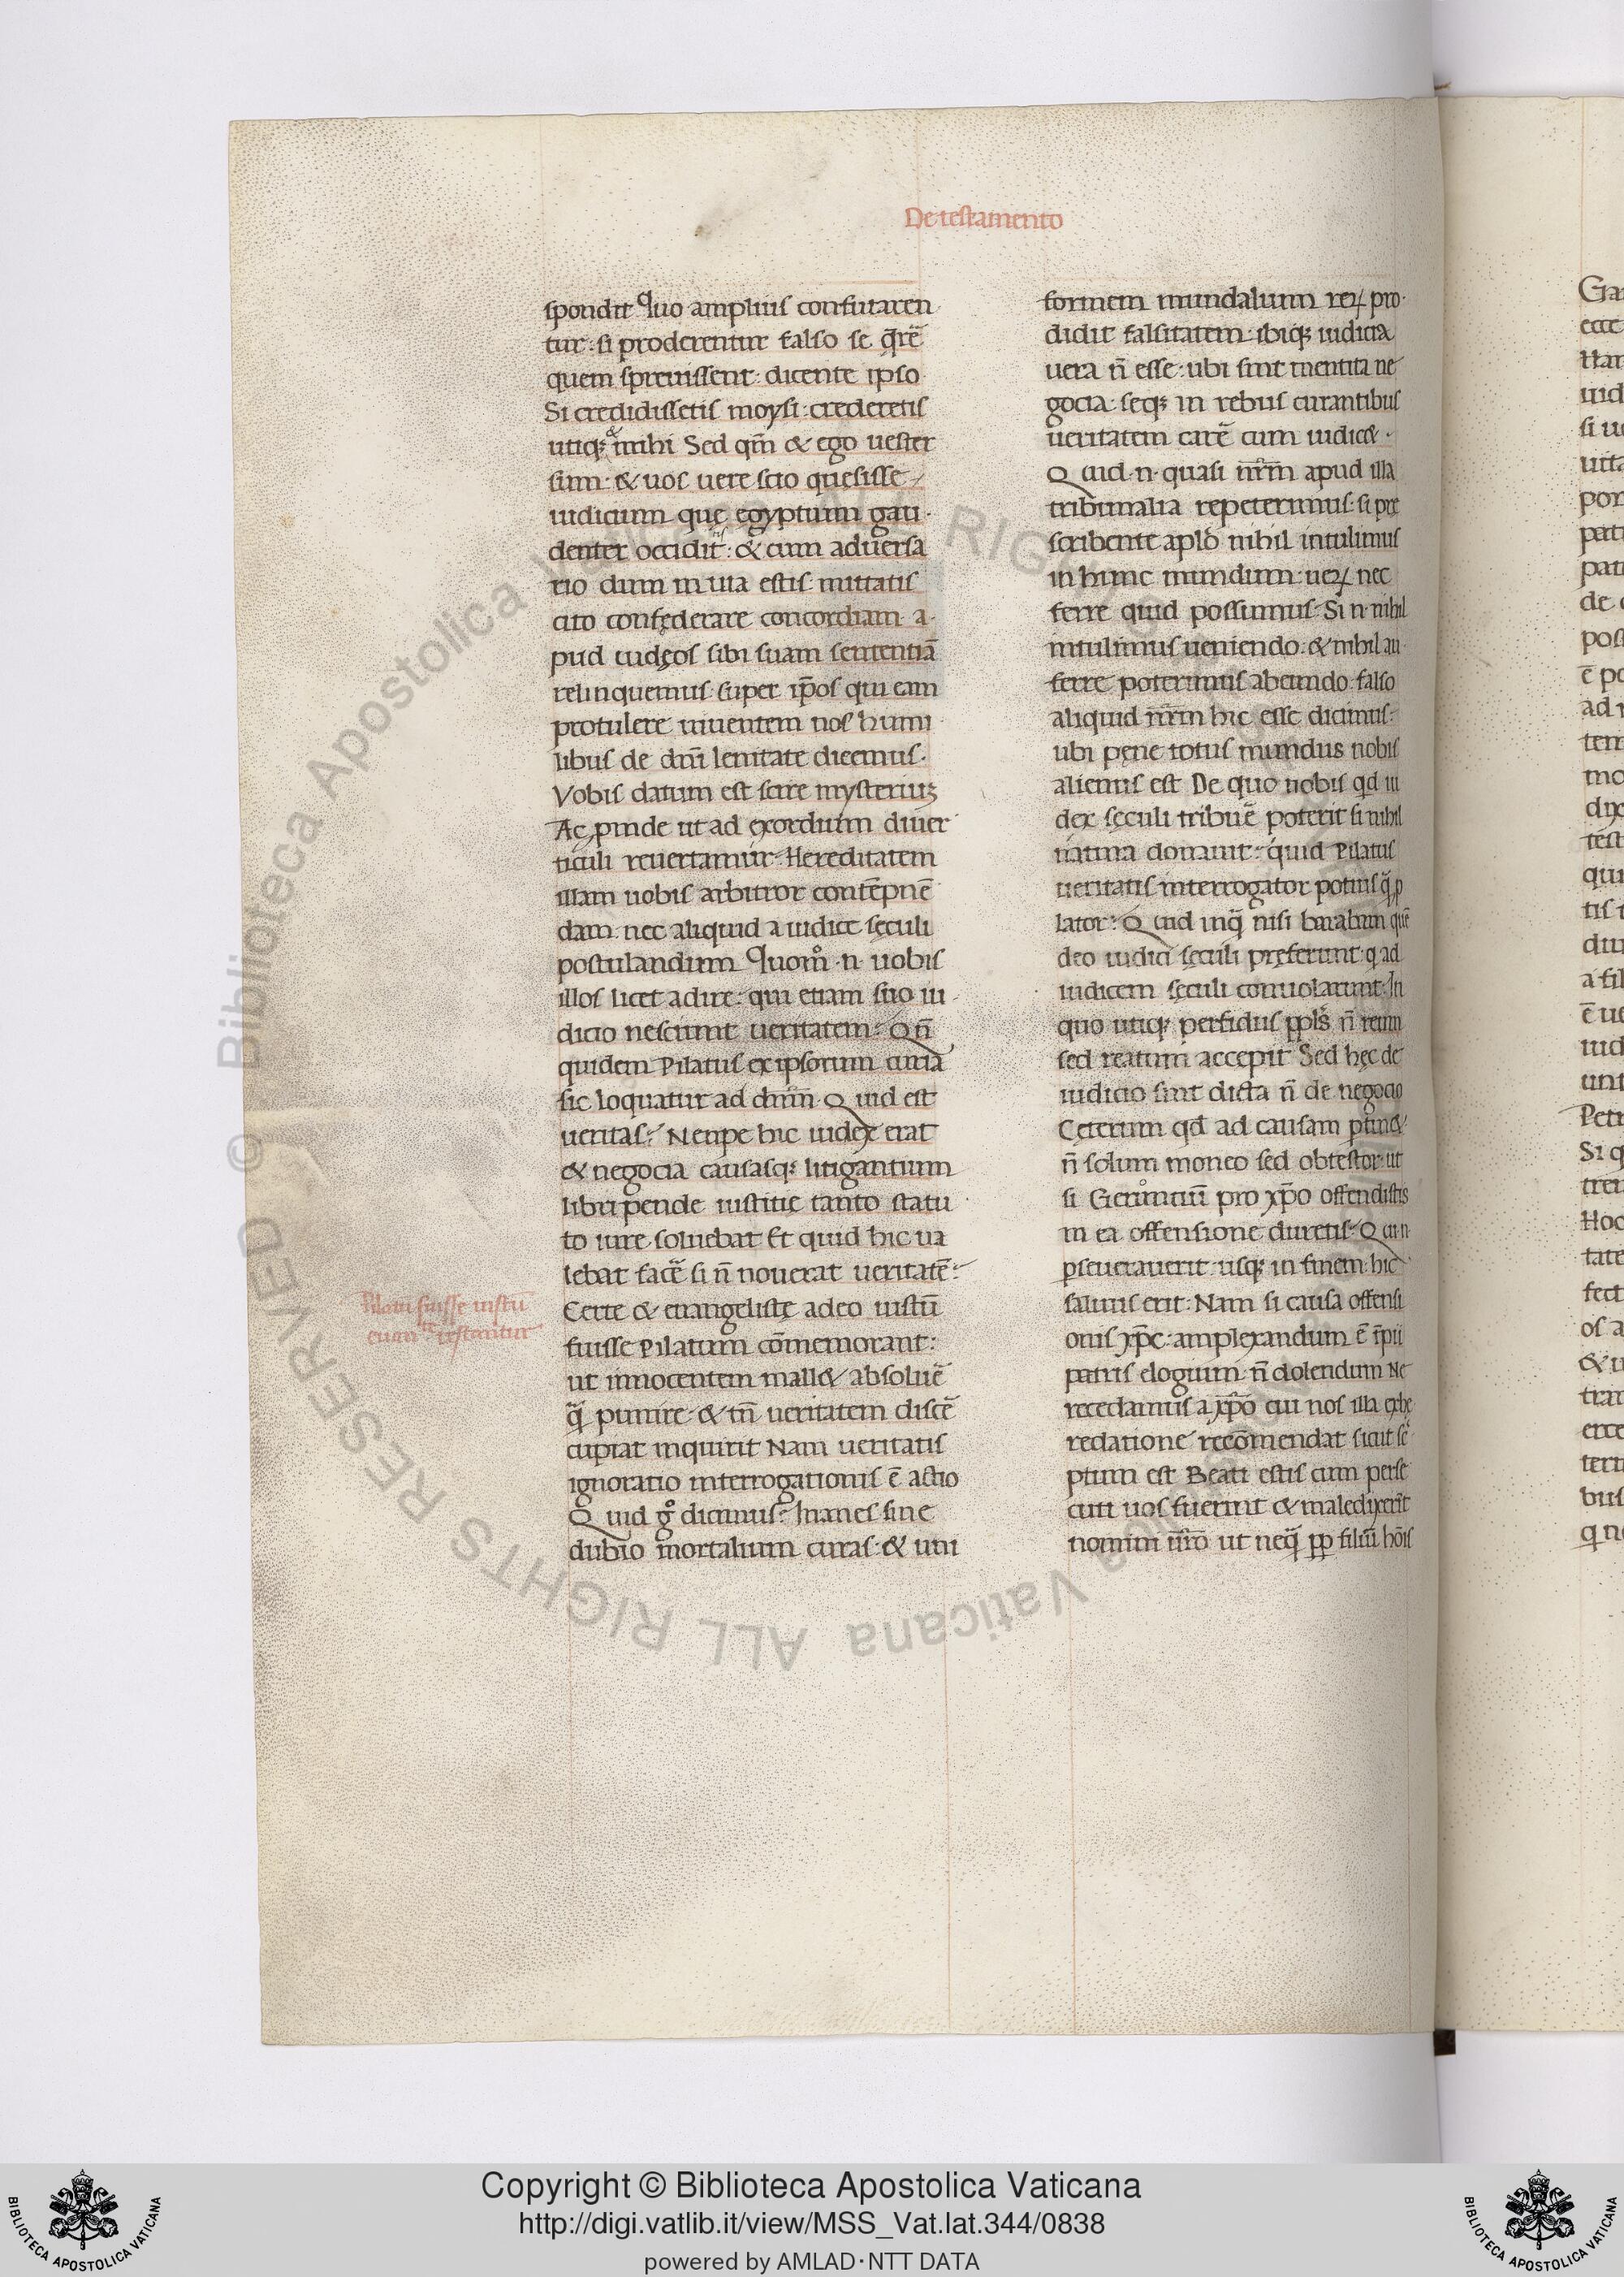 De testamento
spondit Quo amplius confutaren
tur: si proderentur falso se q̄rē
quem sprevissent: dicente ipso
Si credidissetis moysi: crederetis
utiq; & mihi Sed qm̄ & ego uester
sim: & uos uere scio quesisse
iudicium que egyptum gau
denter occidit: & cum aduersa
rio dum in uia estis mittatis
cito confęderare concordiam a
pud iudęos sibi suam sententiā
relinquemus super ip̄os qui eam
protulere inuentem nos humi
libus de dn̄i lenitate dicemus.
Vobis datum est scire mysterium
Ac pinde ut ad exordium diuer
ticuli reuertamur Hereditatem
illam uobis arbitror contēpnē
dam nec aliquid a iudice sęculi
postulandum Quom̊ n̄ uobis
illos licet adire: qui etiam suo iu
dicio nesciunt ueritatem: Qn̄
quidem Pilatus ex ipsorum curia
sic loquatur ad dn̄m Quid est
ueritas? Nempe hic iudex erat
& negocia causasq; litigantium
libripende iustitię tanto statu
to iure soluebat Et quid hic ua
lebat facē si n̄ nouerat ueritatē:
Pilatū fuisse iustū
euan te testantur
Certe & euangelistę adeo iustū
fuisse Pilatum cōmemorant:
ut innocentem mall& absoluē
q̄ punire & tn̄ ueritatem discē
cupiat inquirit Nam ueritatis
ignoratio interrogationis ē actio
Quid g̊ dicimus? Inanes sine
dubio mortalium curas: & uni
formem mundalium rerꝝ pro
didit falsitatem: ibiq; iudicia
uera n̄ esse: ubi sint mentita ne
gocia: seq; in rebus curantibus
ueritatem carē cum iudic&.
Quid n̄ quasi nr̄m apud illa
tribunalia repeterimus: si pre
scribente aplo nihil intulimus
in hunc mundum: uerꝝ nec
ferre quid possumus Si n̄ nihil
intulimus ueniendo: & nihil au
ferre poterimus abeundo: falso
aliquid nr̄m hic esse dicimus:
ubi pęne totus mundus nobis
alienus est De quo nobis qd iu
dex sęculi tribuē poterit si nihil
natura donauit: quid Pilatus
ueritatis interrogator potius q̄ p
lator: Quid inq̄ nisi baraban quē
deo iudici sęculi pręferunt: q ad
iudicem sęculi conuolarunt: In
quo utiq; perfidus ppls n̄ reum
sed reatum accepit Sed hęc de
iudicio sint dicta n̄ de negocio
Cęterum qd ad causam ptin&
n̄ solum moneo sed obtestor: ut
si Geruntiū pro xp̄o offendistis
in ea offensione duretis: Qui n̄
pseuerauerit usq; in finem: hic
saluus erit: Nam si causa offensi
onis xp̄c: amplexandum ē īpii
patris elogium: n̄ dolendum Ne
recedamus a xp̄o cui nos illa exhe
redatione recōmendat sicut sc̄
ptum est Beati estis cum perse
cuti uos fuerint & maledixerīt
nomini ur̄o ut neq̄ pp filiū hōis
Copyright © Biblioteca Apostolica Vaticana
http://digi.vatlib.it/view/MSS_Vat.lat.344/0838
powered by AMLAD·NTT DATA